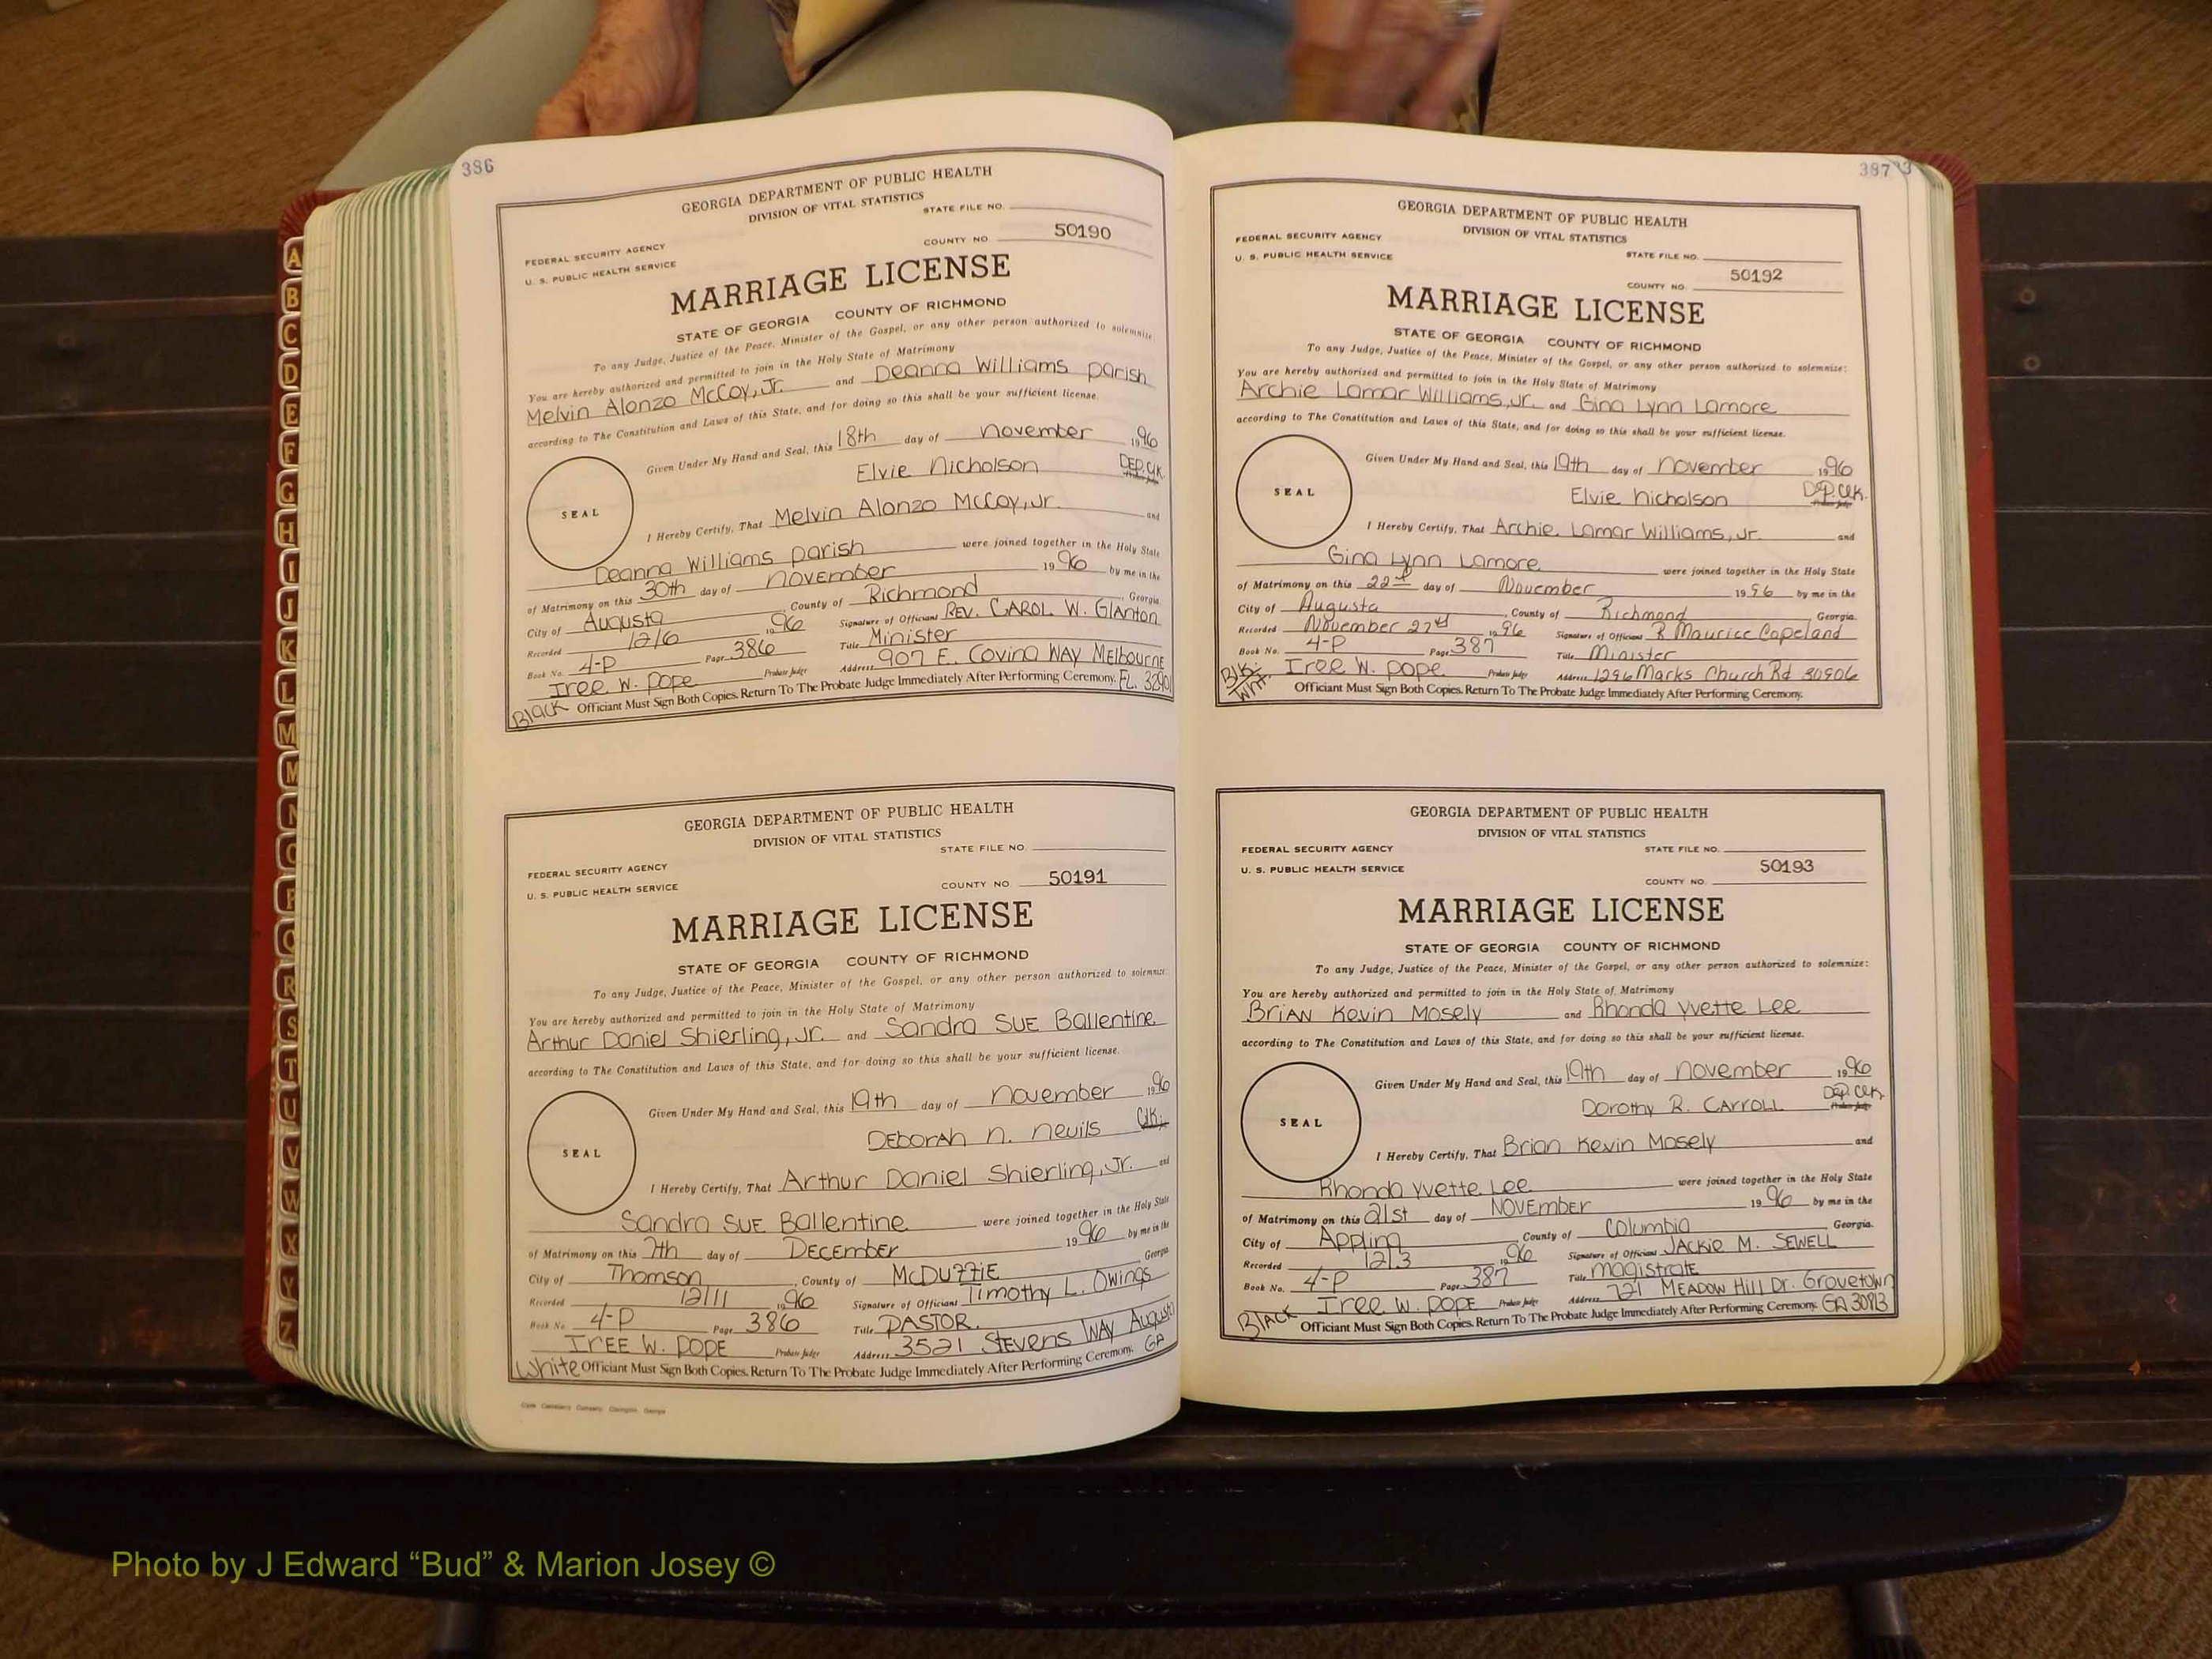 386
GEORGIA DEPARTMENT OF PUBLIC HEALTH
DIVISION OF VITAL STATISTICS
STATE FILE NO.
FEDERAL SECURITY AGENCY
COUNTY NO. 50190
U. S. PUBLIC HEALTH SERVICE
MARRIAGE LICENSE
STATE OF GEORGIA COUNTY OF RICHMOND
To any Judge, Justice of the Peace, Minister of the Gospel, or any other person authorized to solemnize:
You are hereby authorized and permitted to join in the Holy State of Matrimony
Melvin Alonzo McCoy, Jr. and Deanna Williams Parish
according to The Constitution and Laws of this State, and for doing so this shall be your sufficient license.
Given Under My Hand and Seal, this 18th day of November 1996
Elvie Nicholson DEP. Clk.
SEAL
I Hereby Certify, That Melvin Alonzo McCoy, Jr. and
Deanna Williams Parish were joined together in the Holy State
of Matrimony on this 30th day of November 1996 by me in the
City of Augusta, County of Richmond, Georgia.
Recorded 12/6 1996 Signature of Officiant REV. CAROL W. GlAnton
Book No. 4-P Page 386 Title Minister
Iree W. Pope Probate Judge Address 907 E. Covina WAY MElbourne
Black Officiant Must Sign Both Copies. Return To The Probate Judge Immediately After Performing Ceremony. FL. 32901
GEORGIA DEPARTMENT OF PUBLIC HEALTH
DIVISION OF VITAL STATISTICS
STATE FILE NO.
FEDERAL SECURITY AGENCY
COUNTY NO. 50191
U. S. PUBLIC HEALTH SERVICE
MARRIAGE LICENSE
STATE OF GEORGIA COUNTY OF RICHMOND
To any Judge, Justice of the Peace, Minister of the Gospel, or any other person authorized to solemnize:
You are hereby authorized and permitted to join in the Holy State of Matrimony
Arthur Daniel Shierling, Jr. and Sandra SUE Ballentine
according to The Constitution and Laws of this State, and for doing so this shall be your sufficient license.
Given Under My Hand and Seal, this 19th day of November 1996
DEborah N. Nevils Clk.
SEAL
I Hereby Certify, That Arthur Daniel Shierling, Jr. and
Sandra SUE Ballentine were joined together in the Holy State
of Matrimony on this 7th day of DECEmber 1996 by me in the
City of Thomson, County of McDUffiE Georgia
Recorded 12/11 1996 Signature of Officiant Timothy L. Owings
Book No. 4-P Page 386 Title PASTOR.
IREE W. POPE Probate Judge Address 3521 Stevens WAY Augusta
White Officiant Must Sign Both Copies. Return To The Probate Judge Immediately After Performing Ceremony. GA
387
GEORGIA DEPARTMENT OF PUBLIC HEALTH
DIVISION OF VITAL STATISTICS
FEDERAL SECURITY AGENCY
STATE FILE NO.
U. S. PUBLIC HEALTH SERVICE
COUNTY NO. 50192
MARRIAGE LICENSE
STATE OF GEORGIA COUNTY OF RICHMOND
To any Judge, Justice of the Peace, Minister of the Gospel, or any other person authorized to solemnize:
You are hereby authorized and permitted to join in the Holy State of Matrimony
Archie Lamar Williams, Jr. and Gina Lynn Lamore
according to The Constitution and Laws of this State, and for doing so this shall be your sufficient license.
Given Under My Hand and Seal, this 19th day of November 1996
Elvie Nicholson DEP. Clk.
SEAL
I Hereby Certify, That Archie. Lamar Williams, Jr. and
Gina Lynn Lamore were joined together in the Holy State
of Matrimony on this 22nd day of November 1996 by me in the
City of Augusta, County of Richmond Georgia.
Recorded November 27th 1996 Signature of Officiant R Maurice Copeland
Book No. 4-P Page 387 Title Minister
Blk. Iree W. Pope Probate Judge Address 1296 Marks Church Rd 30906
Wht. Officiant Must Sign Both Copies. Return To The Probate Judge Immediately After Performing Ceremony.
GEORGIA DEPARTMENT OF PUBLIC HEALTH
DIVISION OF VITAL STATISTICS
FEDERAL SECURITY AGENCY
STATE FILE NO.
U. S. PUBLIC HEALTH SERVICE
COUNTY NO. 50193
MARRIAGE LICENSE
STATE OF GEORGIA COUNTY OF RICHMOND
To any Judge, Justice of the Peace, Minister of the Gospel, or any other person authorized to solemnize:
You are hereby authorized and permitted to join in the Holy State of Matrimony
BriAN Kevin Mosely and Rhonda Yvette Lee
according to The Constitution and Laws of this State, and for doing so this shall be your sufficient license.
Given Under My Hand and Seal, this 19th day of November 1996
Dorothy R. CARROLL DEP. Clk.
SEAL
I Hereby Certify, That Brian Kevin Mosely and
Rhonda Yvette Lee were joined together in the Holy State
of Matrimony on this 21st day of NOVEmber 1996 by me in the
City of Appling, County of Columbia, Georgia.
Recorded 12/3 1996 Signature of Officiant JAckie M. SEWELL
Book No. 4-P Page 387 Title magistratE
IREE W. POPE Probate Judge Address 721 MEADOW Hill Dr. Grovetown
BlAck Officiant Must Sign Both Copies. Return To The Probate Judge Immediately After Performing Ceremony. GA 30813
A
B
C
D
E
F
G
H
I
J
K
L
M
M
N
O
P
Q
R
S
T
U
V
W
X
Y
Z
Photo by J Edward “Bud” & Marion Josey ©